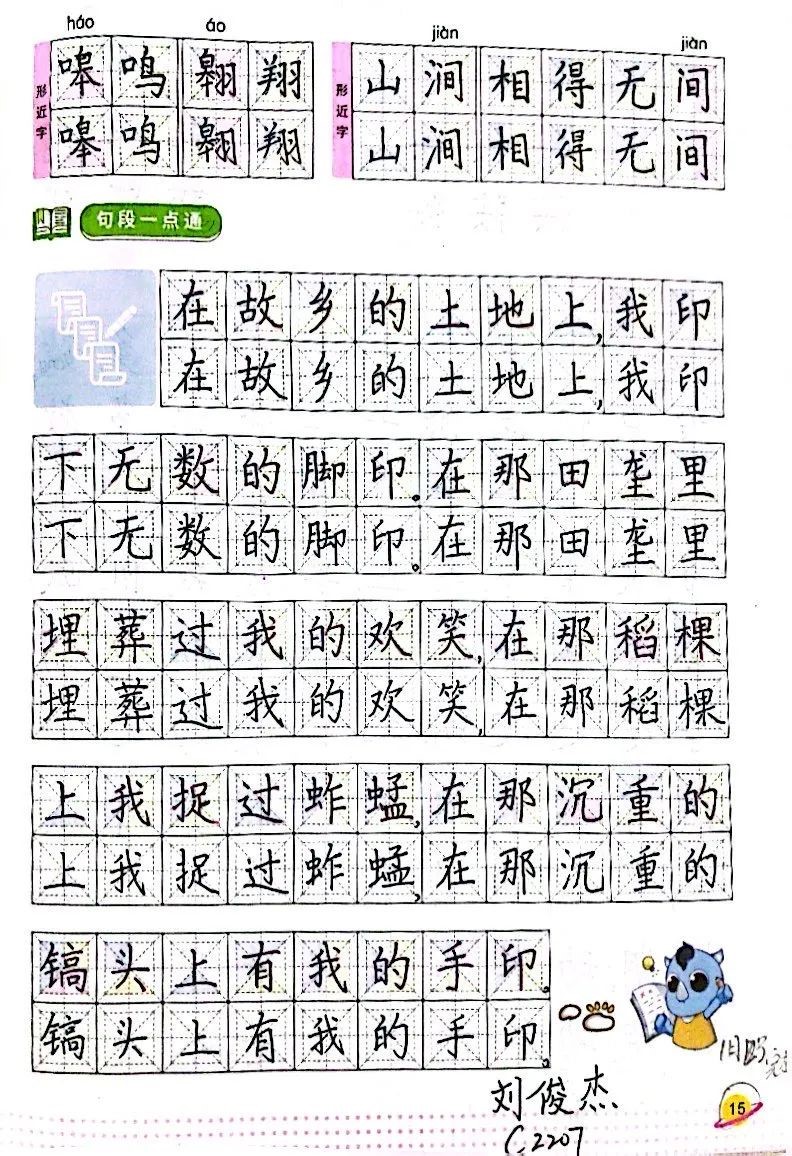 háo áo jiàn jiàn
形近字 嗥鸣翱翔 形近字 山涧相得无间
嗥鸣翱翔 山涧相得无间
句段一点通
在故乡的土地上,我印
在故乡的土地上,我印
下无数的脚印。在那田垄里
下无数的脚印。在那田垄里
埋葬过我的欢笑,在那稻棵
埋葬过我的欢笑,在那稻棵
上我捉过蚱蜢,在那沉重的
上我捉过蚱蜢,在那沉重的
镐头上有我的手印。
镐头上有我的手印。
刘俊杰
15
C2207